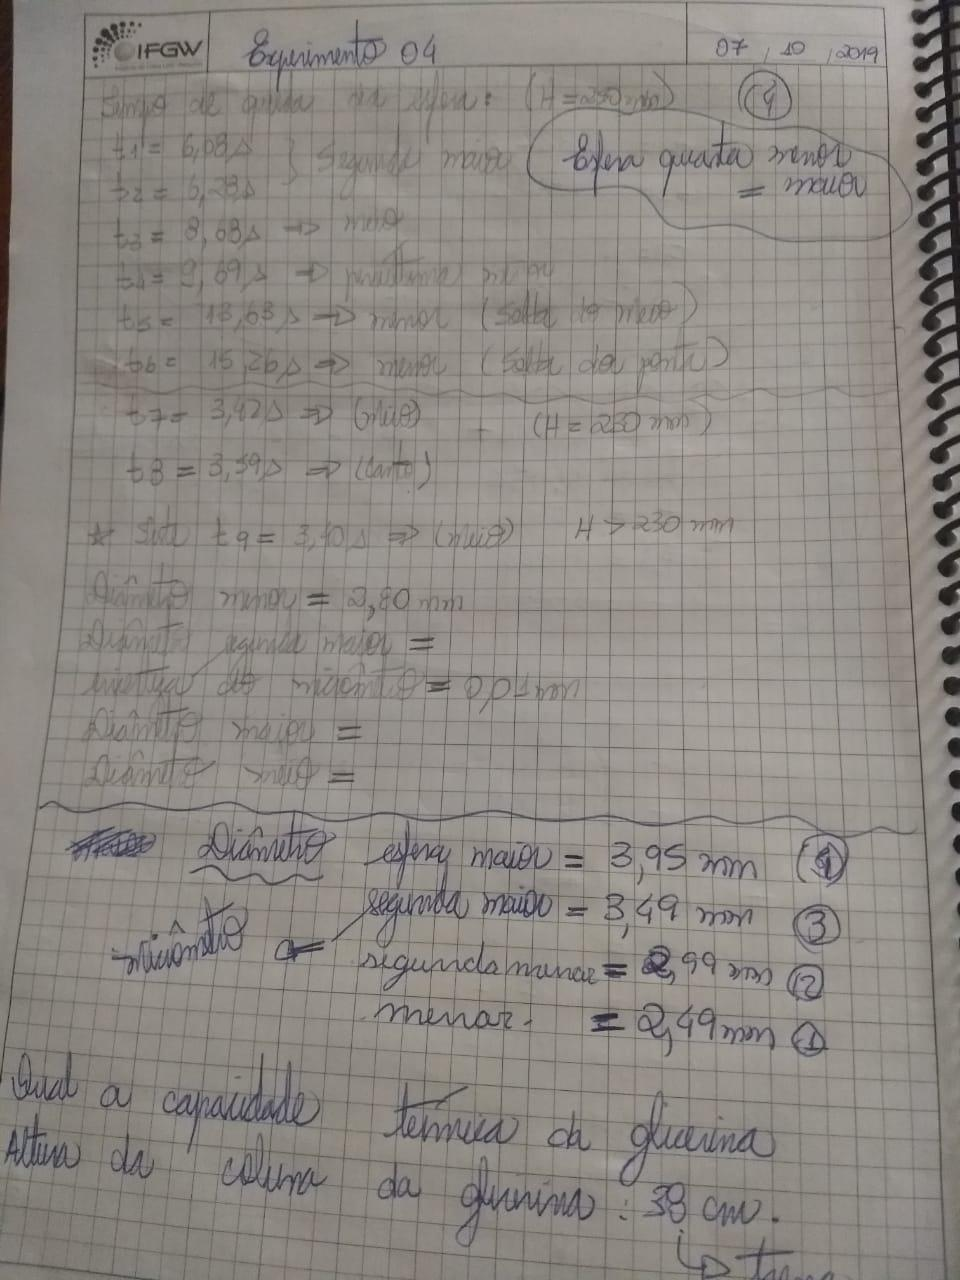 IFGW Experimento 04 07 / 10 / 2019
Tempo de queda da esfera: (H = 230 mm) (4)
t1 = 6,08 s } segunda maior
t2 = 6,28 s
Esfera quarta menor
= maior
t3 = 8,68 s ⇒ meio
t4 = 9,69 s ⇒
t5 = 13,63 s ⇒ menor (Solta do meio)
t6 = 15,26 s ⇒ menor (Solta da ponta)
t7 = 3,42 s ⇒ (meio) (H = 230 mm)
t8 = 3,59 s ⇒ (canto)
* t9 = 3,40 s ⇒ (meio) H > 230 mm
Diâmetro menor = 2,80 mm
Diâmetro segunda maior =
incerteza do micrômetro = 0,01 mm
Diâmetro maior =
Diâmetro meio =
Diâmetro esfera maior = 3,95 mm (4)
segunda maior = 3,49 mm (3)
micrômetro
segunda menor = 2,99 mm (2)
menor. = 2,49 mm (1)
Qual a capacidade térmica da glicerina
Altura da coluna da glicerina : 38 cm.